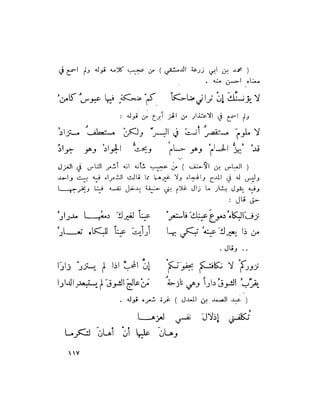 ( محمد بن ابي زرعة الدمشقي ) من عجيب كلامه قوله ولم اسمع في
معناه احسن منه .
لا يؤنسنَّكَ إنْ تراني ضاحكاً كمْ ضحكةٍ فيها عبوسٌ كامنُ
ولم اسمع في الاعتذار من الهز أبرع من قوله :
لا ملومٌ مستقصرٌ أنتَ في البسرِّ ولكنْ مستعطفٌ مستزادُ
قدْ يُهزُّ الحسامُ وهو حسامٌ ويُحثُّ الجوادُ وهو جوادُ
( العباس بن الاحنف ) من عجيب شأنه انه أشعر الناس في الغزل
وليس له في المدح والهجاء ولا غيرهما مما قالت الشعراء فيه بيت واحد
وفيه يقول بشار ما زال غلام بني حنيفة يدخل نفسه فينا ويخرجهـــا
حتى قال :
نزفَ البكاءُ دموعَ عينكَ فاستعرْ عيناً لغيركَ دمعُهـــا مدرارُ
من ذا يعيركَ عينهُ تبكي بهـا أرأيتَ عيناً للبكاءِ تعـــارُ
.. وقال .
نزوركمْ لا نكافئكمْ بجفوتكمْ إنَّ المحبَّ اذا لم يستزرْ زارا
يقرّبُ الشوقُ داراً وهي نازحةٌ مَنْ عالجَ الشوقَ لم يستبعدِ الدارا
( عبد الصمد بن المعدل ) غرة شعره قوله .
تُكلفني إذلالَ نفسي لعزهـــا
وهـانَ عليها أنْ أهـانَ لتكرمـا
١١٧